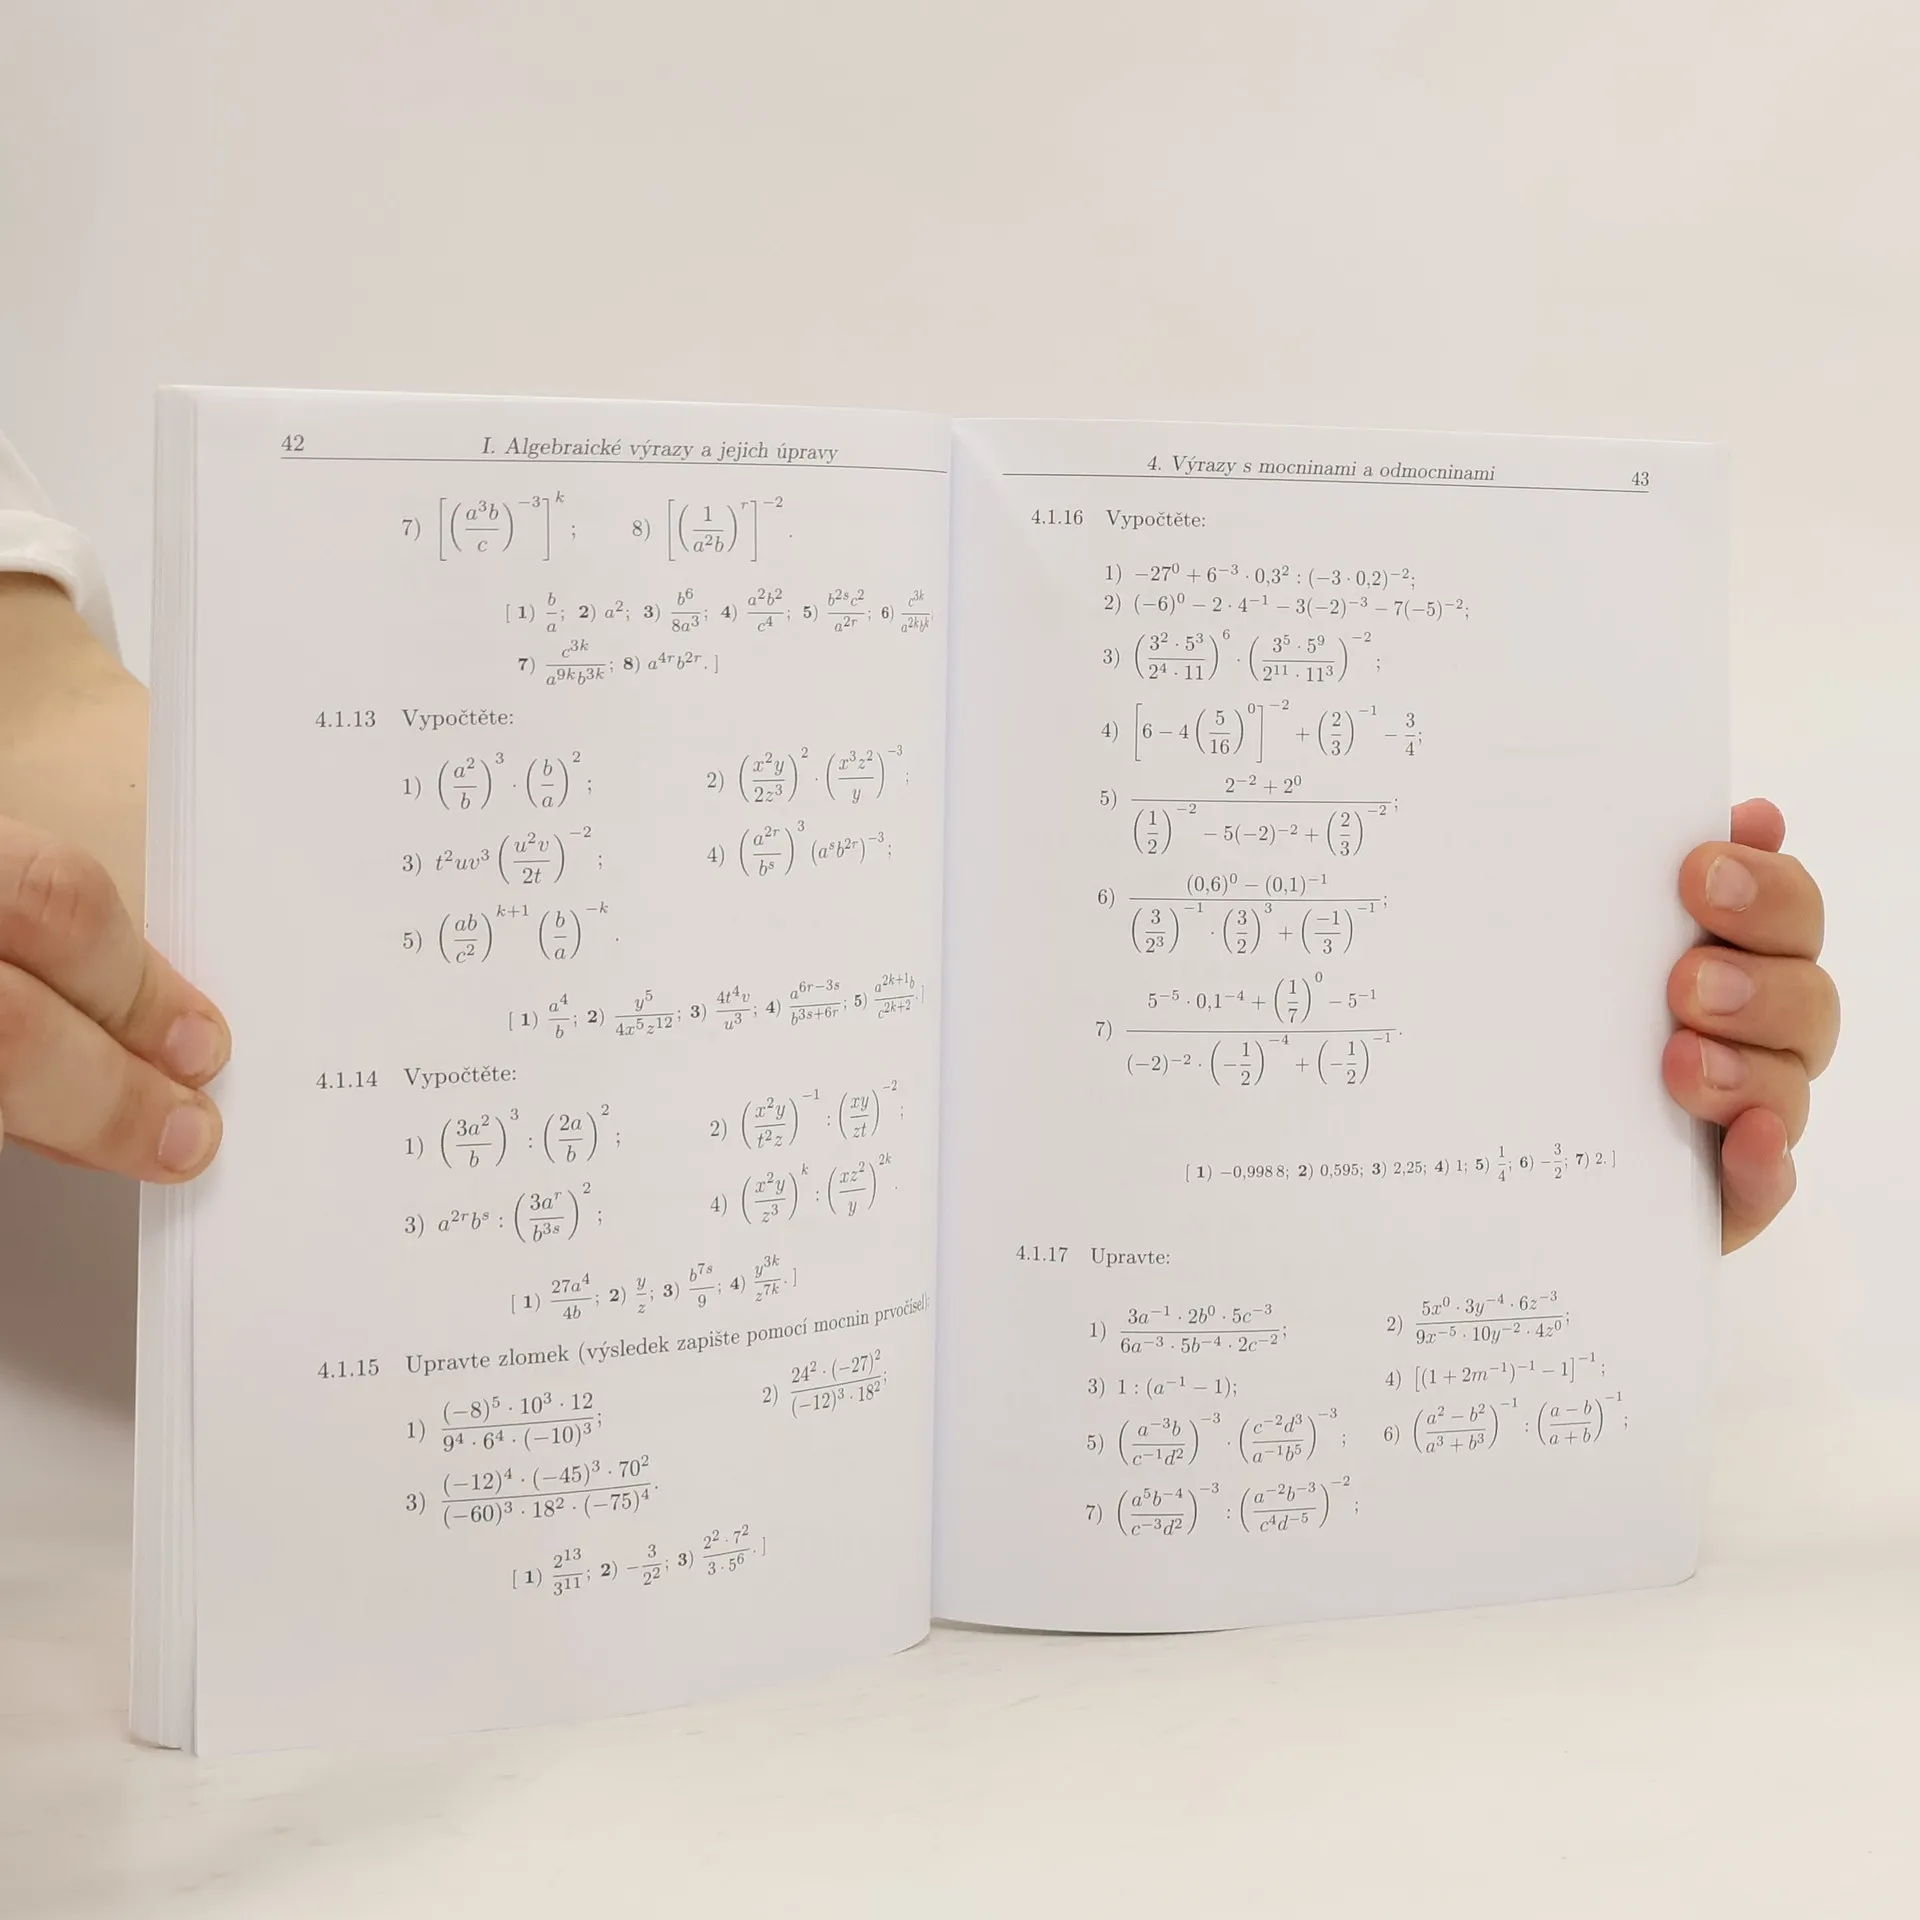 42 I. Algebraické výrazy a jejich úpravy
7) [((a³b)/c)⁻³]ᵏ; 8) [(1/(a²b))ʳ]⁻².
[ 1) b/a; 2) a²; 3) b⁶/(8a³); 4) (a²b²)/c⁴; 5) (b²ˢc²)/a²ʳ; 6) c³ᵏ/(a²ᵏbᵏ);
7) c³ᵏ/(a⁹ᵏb³ᵏ); 8) a⁴ʳb²ʳ. ]
4.1.13 Vypočtěte:
1) (a²/b)³ · (b/a)²; 2) ((x²y)/(2z³))² · ((x³z²)/y)⁻³;
3) t²uv³ ((u²v)/(2t))⁻²; 4) (a²ʳ/bˢ)³ (aˢb²ʳ)⁻³;
5) ((ab)/c²)ᵏ⁺¹ (b/a)⁻ᵏ.
[ 1) a⁴/b; 2) y⁵/(4x⁵z¹²); 3) (4t⁴v)/u³; 4) a⁶ʳ⁻³ˢ/b³ˢ⁺⁶ʳ; 5) (a²ᵏ⁺¹b)/c²ᵏ⁺². ]
4.1.14 Vypočtěte:
1) ((3a²)/b)³ : ((2a)/b)²; 2) ((x²y)/(t²z))⁻¹ : ((xy)/(zt))⁻²;
3) a²ʳbˢ : ((3aʳ)/b³ˢ)²; 4) ((x²y)/z³)ᵏ : ((xz²)/y)²ᵏ.
[ 1) (27a⁴)/(4b); 2) y/z; 3) b⁷ˢ/9; 4) y³ᵏ/z⁷ᵏ. ]
4.1.15 Upravte zlomek (výsledek zapište pomocí mocnin prvočísel):
1) ((−8)⁵ · 10³ · 12)/(9⁴ · 6⁴ · (−10)³); 2) (24² · (−27)²)/((−12)³ · 18²);
3) ((−12)⁴ · (−45)³ · 70²)/((−60)³ · 18² · (−75)⁴).
[ 1) 2¹³/3¹¹; 2) −3/2²; 3) (2² · 7²)/(3 · 5⁶). ]
4. Výrazy s mocninami a odmocninami 43
4.1.16 Vypočtěte:
1) −27⁰ + 6⁻³ · 0,3² : (−3 · 0,2)⁻²;
2) (−6)⁰ − 2 · 4⁻¹ − 3(−2)⁻³ − 7(−5)⁻²;
3) ((3² · 5³)/(2⁴ · 11))⁶ · ((3⁵ · 5⁹)/(2¹¹ · 11³))⁻²;
4) [6 − 4(5/16)⁰]⁻² + (2/3)⁻¹ − 3/4;
5) (2⁻² + 2⁰)/((1/2)⁻² − 5(−2)⁻² + (2/3)⁻²);
6) ((0,6)⁰ − (0,1)⁻¹)/((3/2³)⁻¹ · (3/2)³ + (−1/3)⁻¹);
7) (5⁻⁵ · 0,1⁻⁴ + (1/7)⁰ − 5⁻¹)/((−2)⁻² · (−1/2)⁻⁴ + (−1/2)⁻¹).
[ 1) −0,998 8; 2) 0,595; 3) 2,25; 4) 1; 5) 1/4; 6) −3/2; 7) 2. ]
4.1.17 Upravte:
1) (3a⁻¹ · 2b⁰ · 5c⁻³)/(6a⁻³ · 5b⁻⁴ · 2c⁻²); 2) (5x⁰ · 3y⁻⁴ · 6z⁻³)/(9x⁻⁵ · 10y⁻² · 4z⁰);
3) 1 : (a⁻¹ − 1); 4) [(1 + 2m⁻¹)⁻¹ − 1]⁻¹;
5) ((a⁻³b)/(c⁻¹d²))⁻³ · ((c⁻²d³)/(a⁻¹b⁵))⁻³; 6) ((a² − b²)/(a³ + b³))⁻¹ : ((a − b)/(a + b))⁻¹;
7) ((a⁵b⁻⁴)/(c⁻³d²))⁻³ : ((a⁻²b⁻³)/(c⁴d⁻⁵))⁻²;